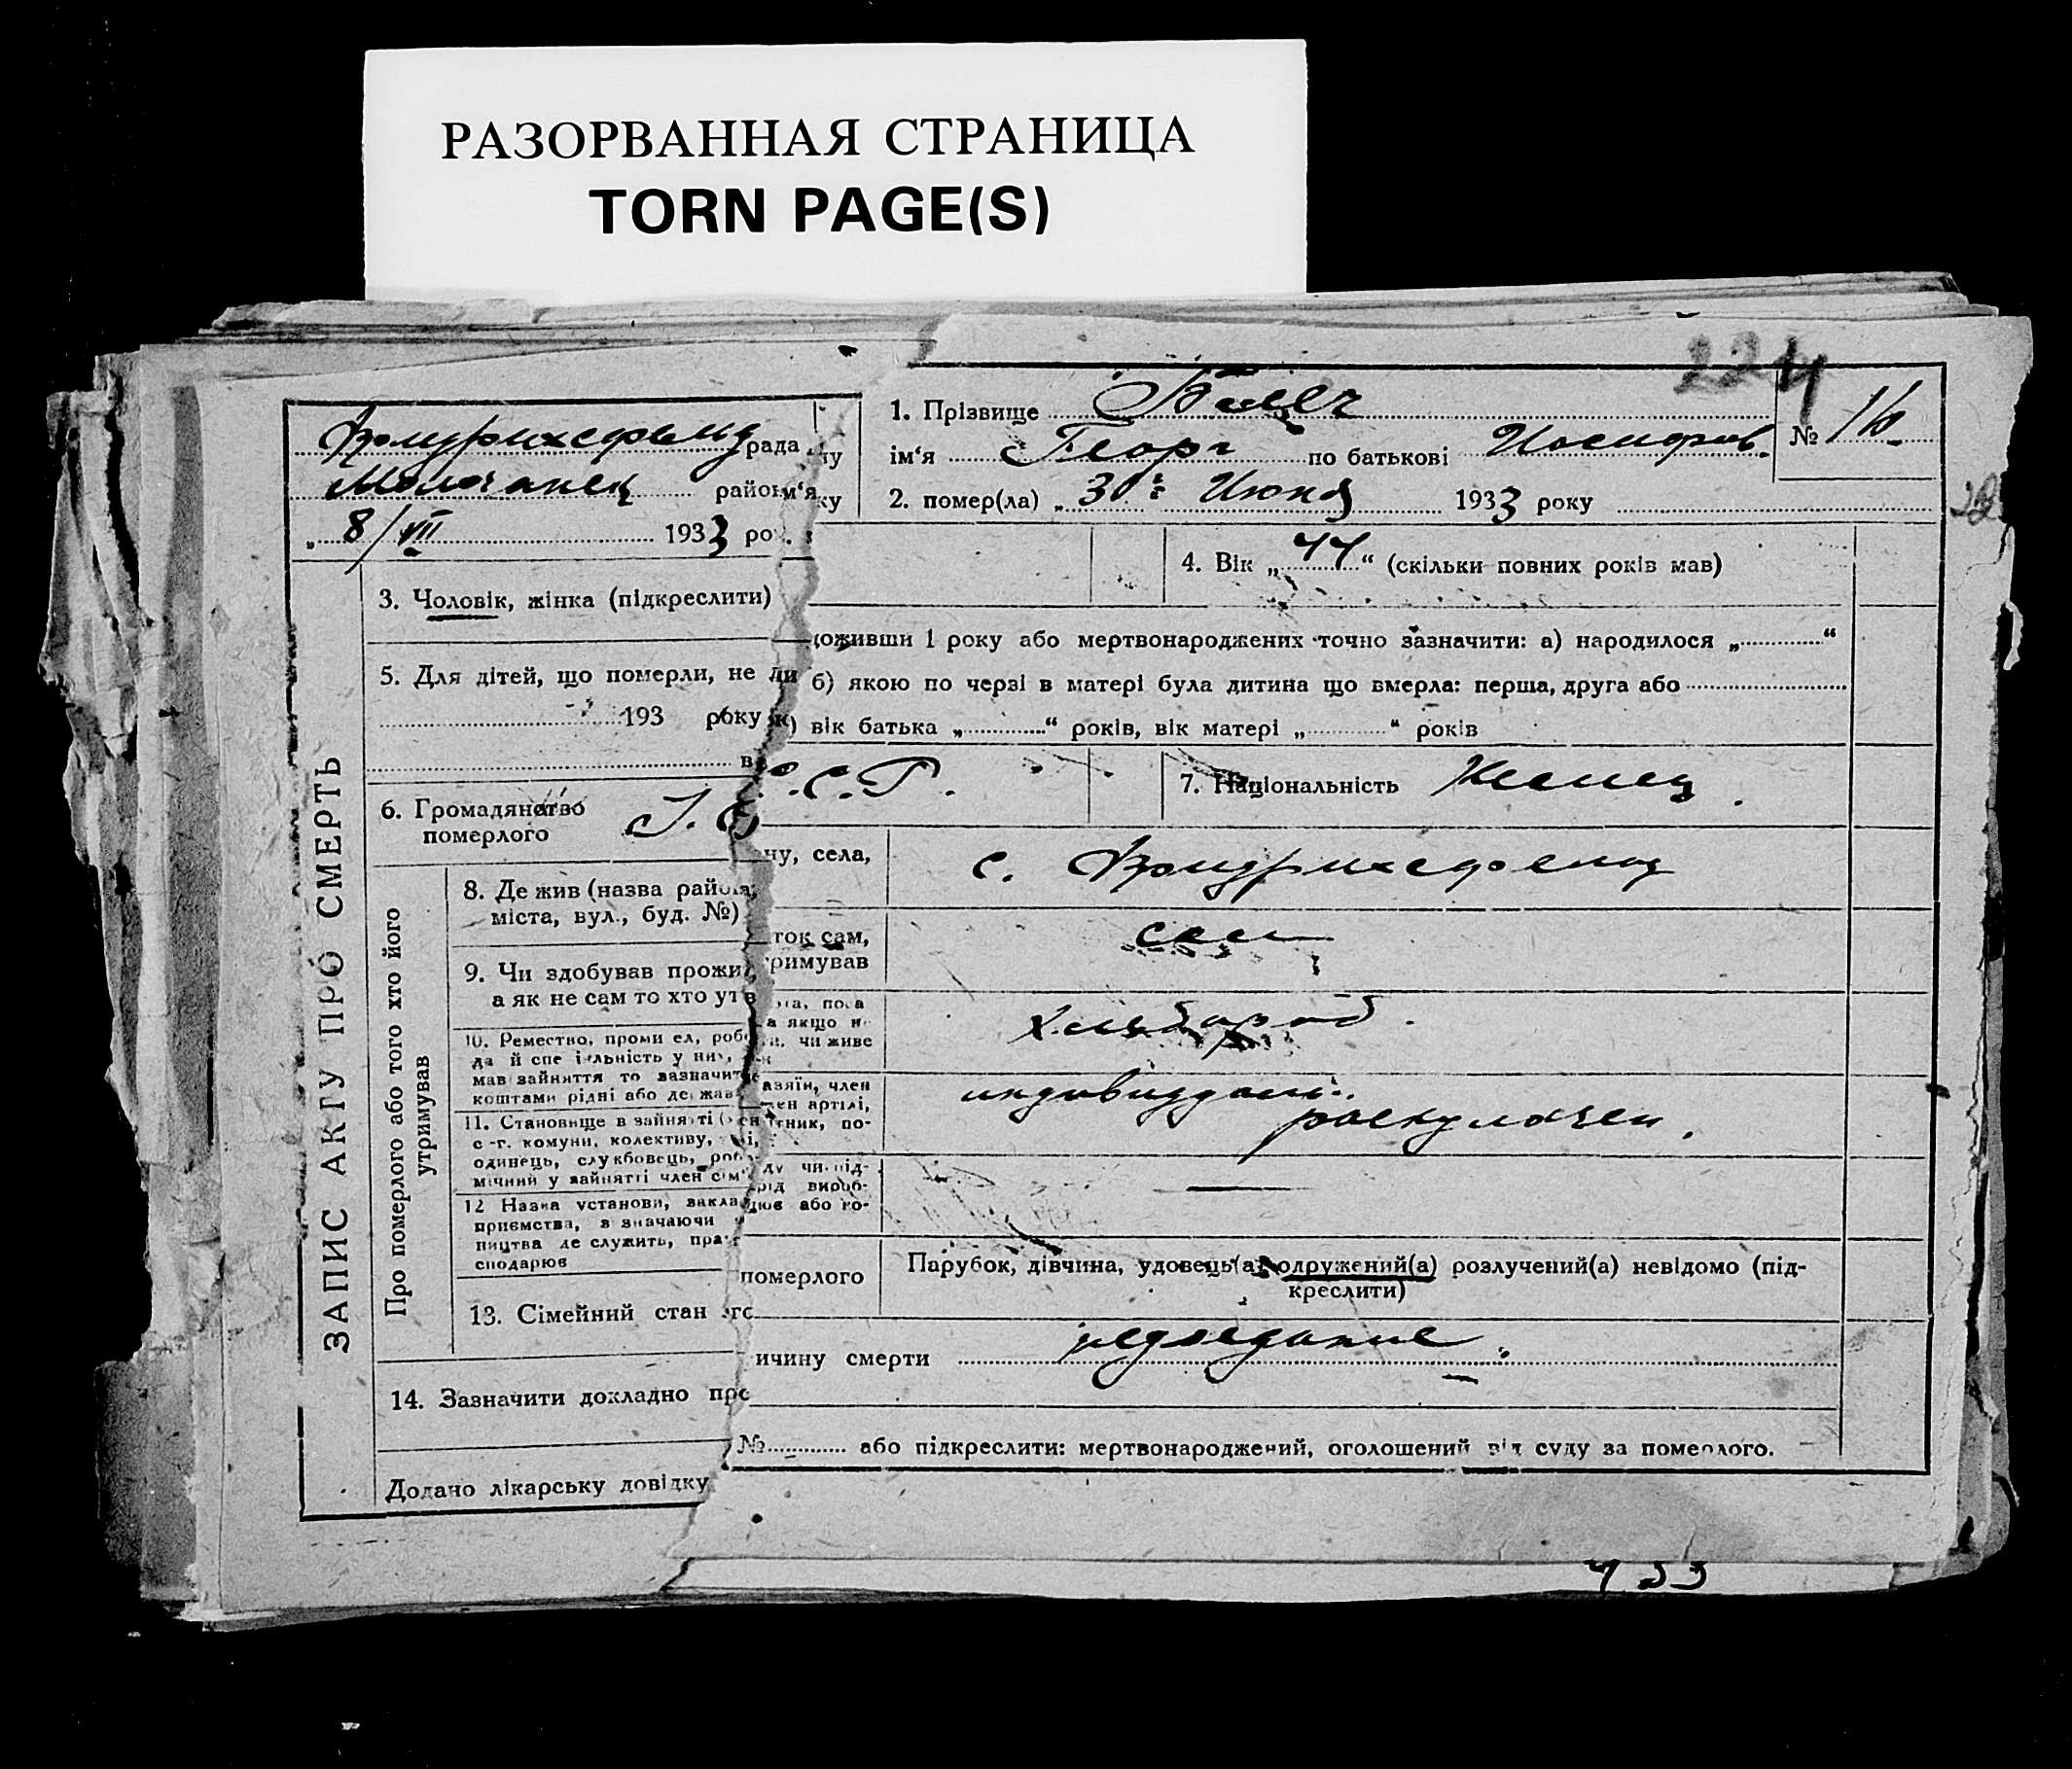 РАЗОРВАННАЯ СТРАНИЦА
TORN PAGE(S)
224
рада
Молочанец район
„ 8/VII 1933 ро
1. Прізвище
№
ім‘я Георг по батькові Иосифов.
2. помер(ла) „ 30 Июня 1933 року
ЗАПИС АКТУ ПРО СМЕРТЬ
3. Чоловік, жінка (підкреслити)
4. Вік „ 44 “ (скільки повних років мав)
5. Для дітей, що померли, не
доживши 1 року або мертвонароджених точно зазначити: а) народилося „ “
193 року
б) якою по черзі в матері була дитина що вмерла: перша, друга або
) вік батька „ “ років, вік матері „ “ років
6. Громадянство
померлого
С.С.Р.
7. Національність Немец.
Про померлого або того хто його
утримував
8. Де жив (назва району, села,
міста, вул., буд. №)
с.
9. Чи здобував прожиток сам,
а як не сам то хто утримував
сам
10. Ремество, проми ел, роб
да й спе іяльність у них,
мав зайняття то зазначит
коштами рідні або держав
а якщо н
чи живе
хлебороб.
11. Становище в зайнятті
с-г. комуни, колективу,
одинець, службовець, роб
мічний у зайнятті член сім
азяїн, член
лен артілі,
тник, по-
индивидуал.
раскулачен.
12 Назва установи, закла
приємства, зазначаючи
ництва де служить, пра
сподарює
ду чи під-
рід вироб-
цює або го-
—
13. Сімейний стан
померлого
Парубок, дівчина, удовець(а) одружений(а) розлучений(а) невідомо (під-
креслити)
14. Зазначити докладно причину смерти недоедание.
Додано лікарську довідку № або підкреслити: мертвонароджений, оголошений від суду за померлого.
433